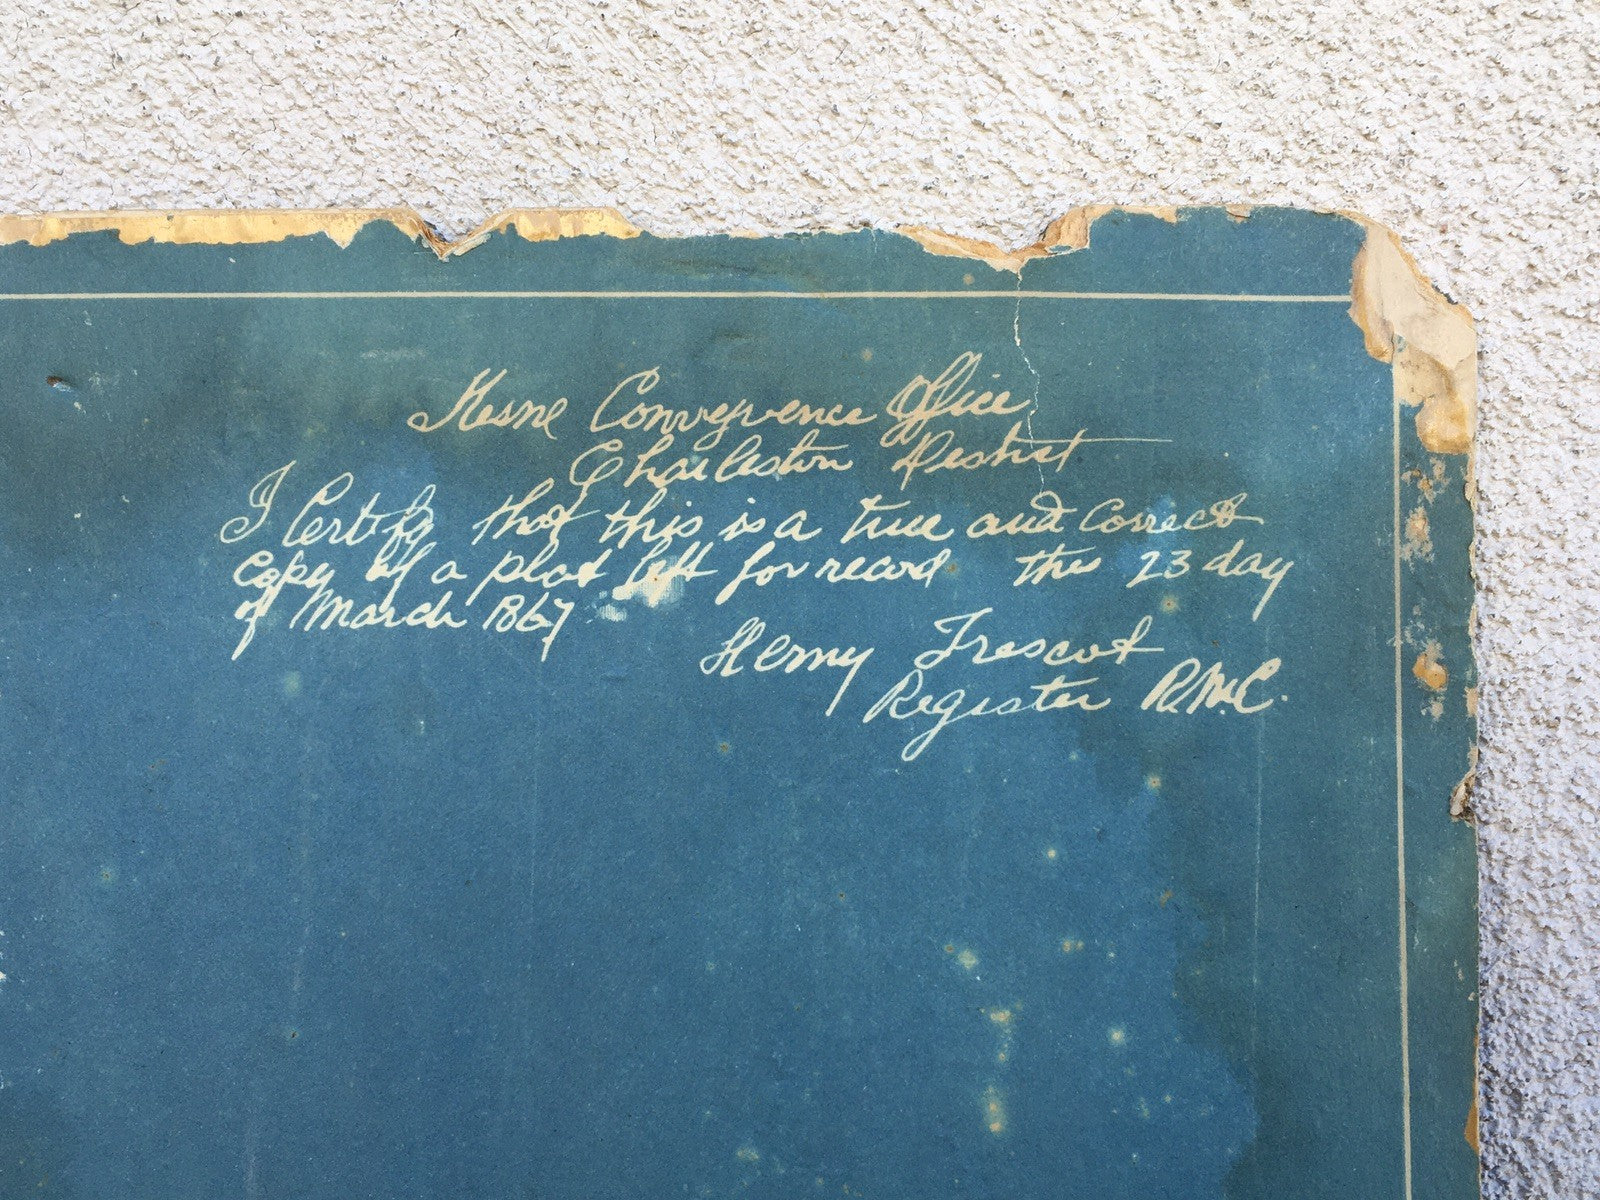 Mesne Conveyence Office
Charleston District
I Certify that this is a true and Correct
Copy of a plat left for record the 23 day
of March 1867
Henry Trescot
Register R.M.C.